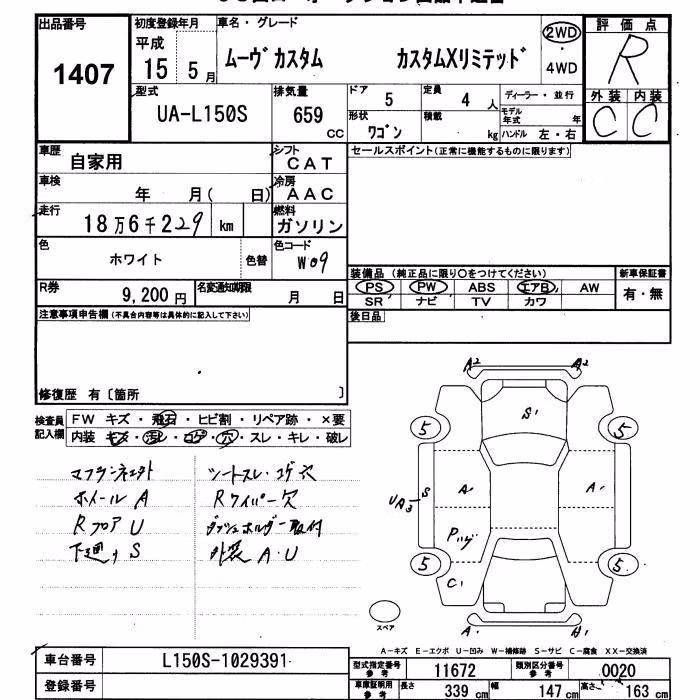 出品番号 初度登録年月 車名・グレード 評価点
1407 平成 15年 5月 ムーヴ カスタム カスタムXリミテッド 2WD 4WD R
型式 排気量 ドア 5 定員 4人 ディーラー・並行 外装 内装
UA-L150S 659 CC 形状 ワゴン 積載 kg モデル年式 年 ハンドル 左・右 C C
車歴 自家用 シフト CAT セールスポイント(正常に機能するものに限ります)
車検 年 月( 日) 冷房 AAC
走行 18万6千229 km 燃料 ガソリン
色 ホワイト 色替 色コード W09
装備品 (純正品に限り○をつけてください) 新車保証書
R券 9,200円 名変通知期限 月 日 PS PW ABS エアB AW 有・無
SR ナビ TV カワ
注意事項申告欄(不具合内容等は具体的に記入して下さい) 後日品
修復歴 有〔箇所 〕
検査員記入欄 FW キズ・飛石・ヒビ割・リペア跡・×要
内装 キズ・汚レ・コゲ・穴・スレ・キレ・破レ
シートスレ・コゲ穴
ホイール A Rワイパー欠
Rフロア U ダッシュホルダー取付
下廻り S 外装 A・U
A2 A2
S1
5 5
A1 A1
UA3 S
5 5
C1
スペア A1
A-キズ E-エクボ U-凹み W-補修跡 S-サビ C-腐食 XX-交換済
車台番号 L150S-1029391 型式指定番号 参考 11672 類別区分番号 参考 0020
登録番号 車庫証明用 参考 長さ 339 cm 幅 147 cm 高さ 163 cm